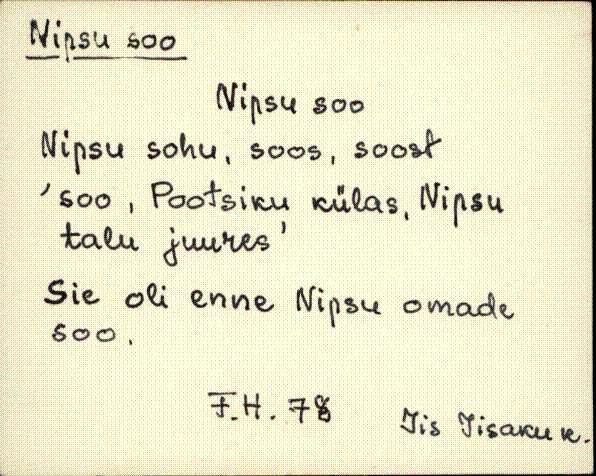 Nipsu soo
Nipsu soo
Nipsu sohu, soos, soost
'soo, Pootsiku külas, Nipsu
talu juures'
Sie oli enne Nipsu omade
soo.
F.H. 78
Iis Iisaku k.